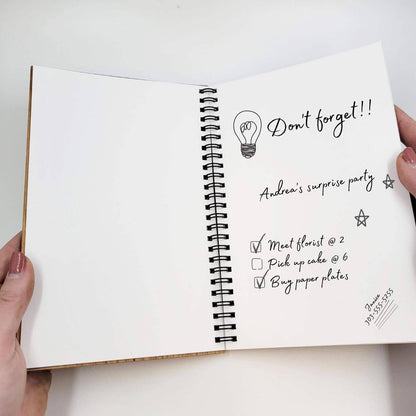 Don't forget!!
Andrea's surprise party
Meet florist @ 2
Pick up cake @ 6
Buy paper plates
Janice
303-555-5255